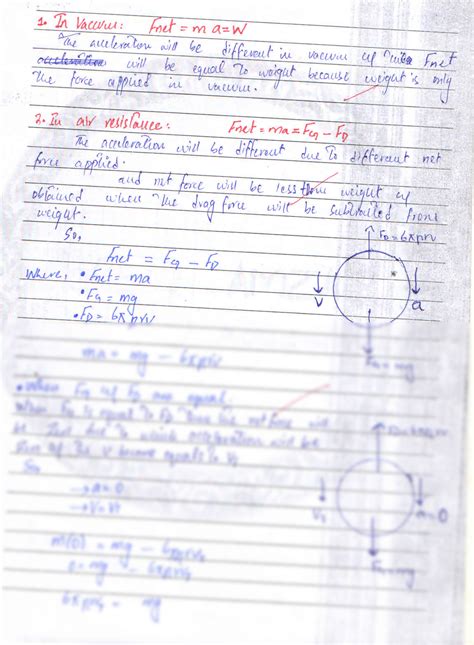 1. In Vaccum: Fnet = m a = W
The acceleration will be different in vacuum Fnet
will be equal to weight because weight is only
the force applied in vacuum.
2. In air resistance: Fnet = ma = FG - FD
The acceleration will be different due to different net
force applied.
and net force will be less from weight
obtained when the drag force will be subtracted from
weight.
So,
Fnet = FG - FD
Where, • Fnet = ma
• FG = mg
• FD = 6πηrv
FD = 6πηrv
V
a
FG = mg
ma = mg - 6πηrv
• When FG FD are equal.
When FG is equal to FD net force will
be due to which acceleration will be
of the V become equals to Vt
So
→ a = 0
→ V = Vt
Vt
a = 0
FG = mg
m(0) = mg - 6πηrvt
0 = mg - 6πηrvt
6πηrvt = mg